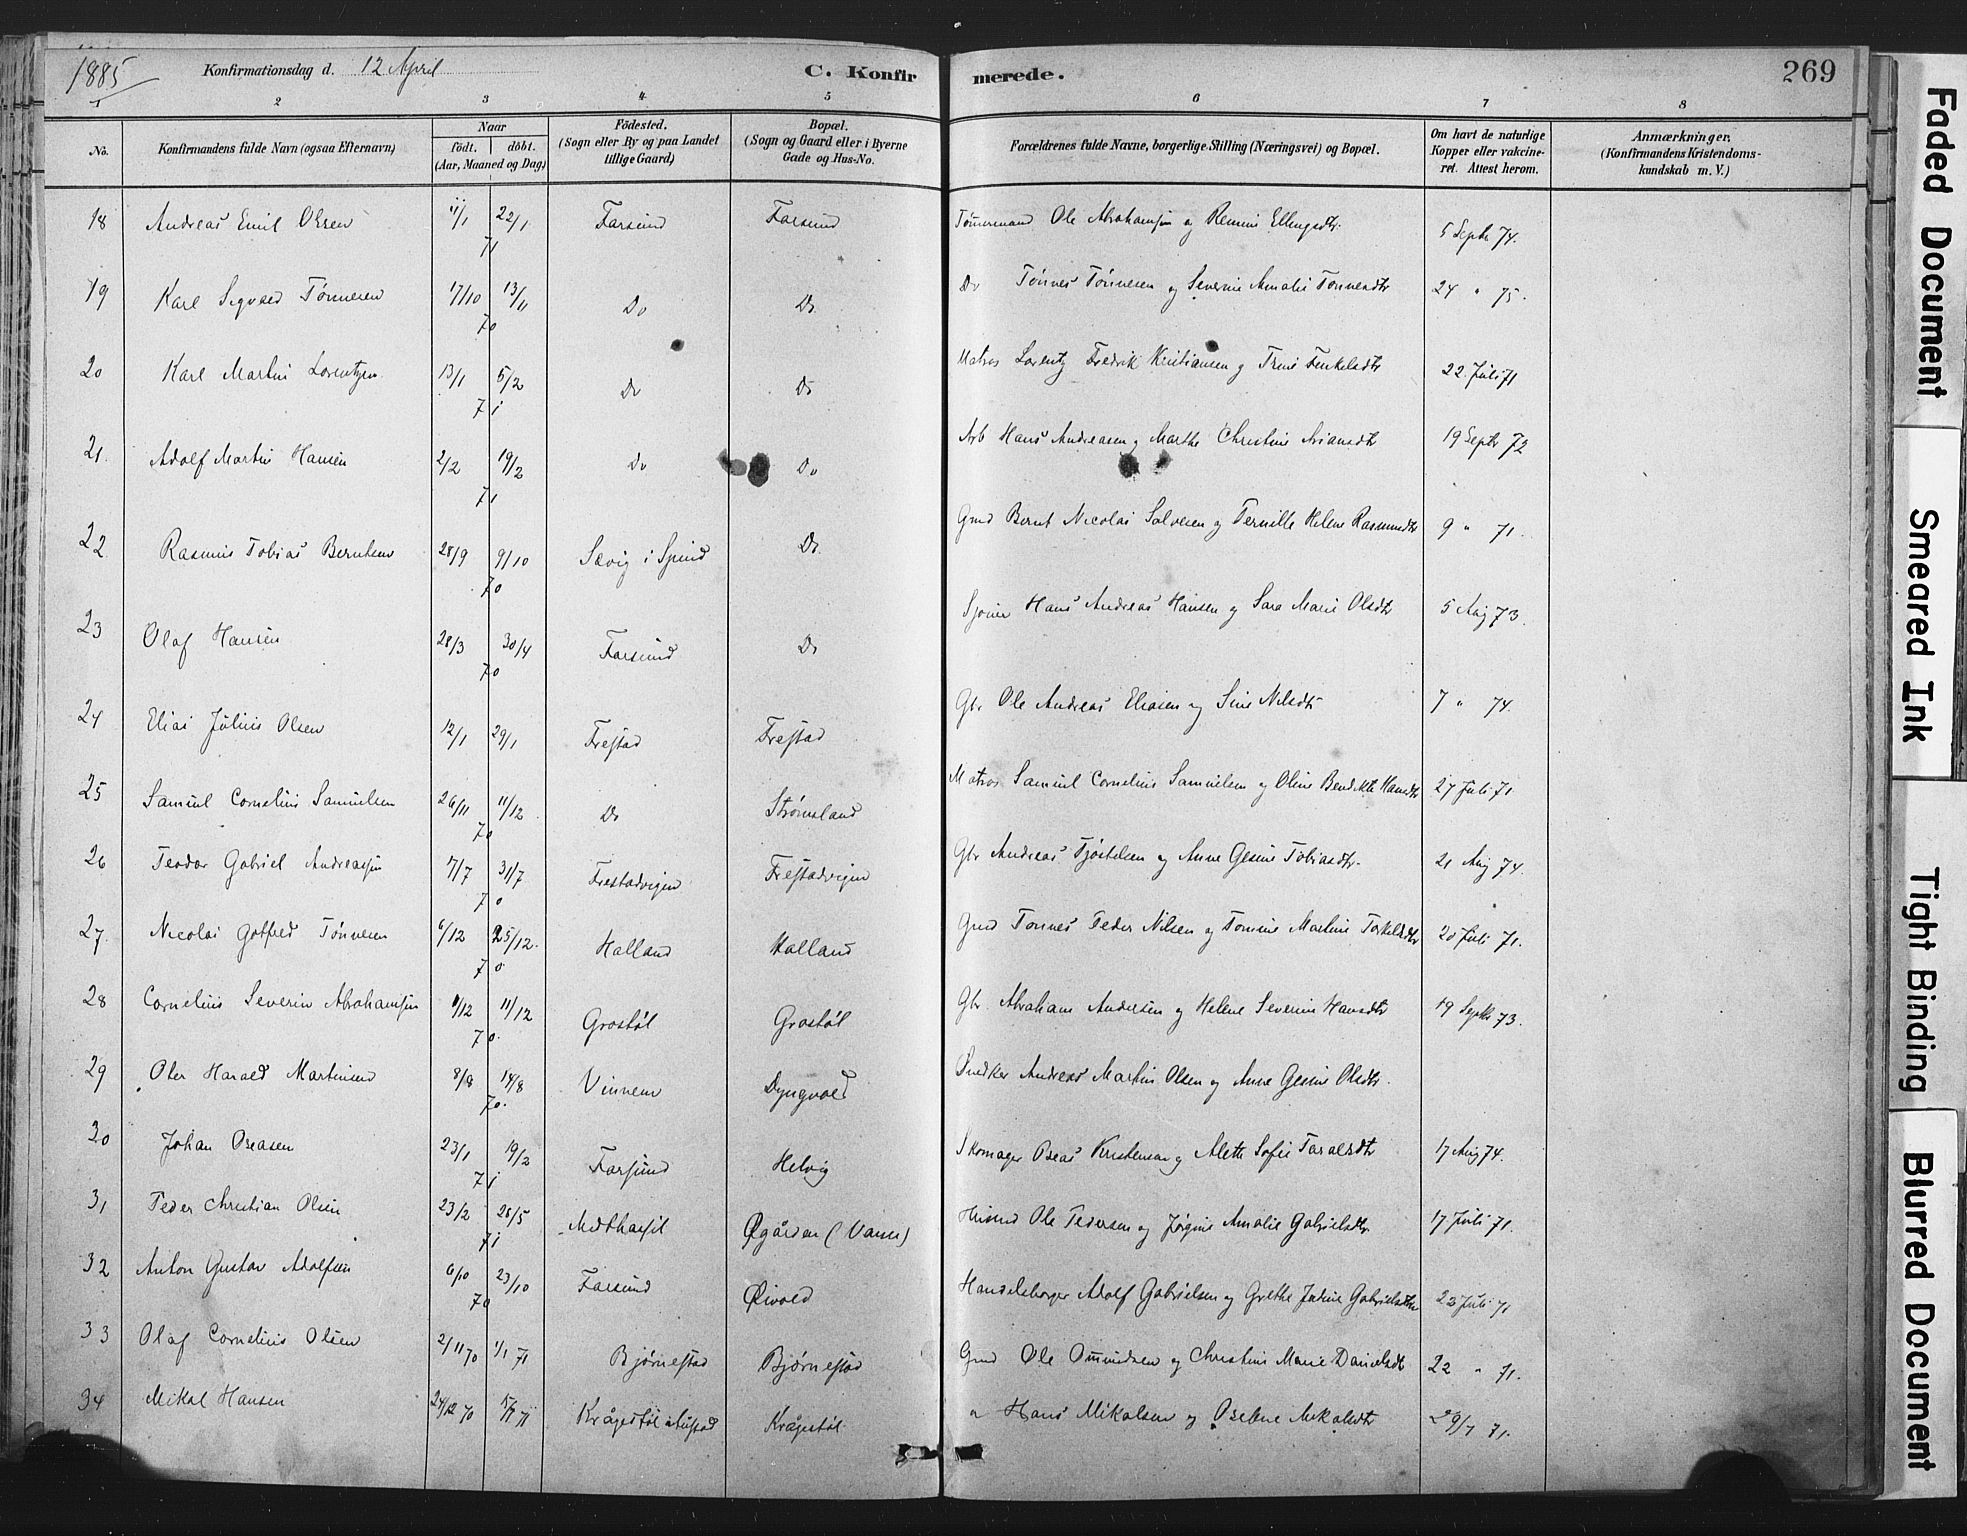 1885 Konfirmationsdag d. 12 April C. Konfirmerede. 269
1 2 3 4 5 6 7 8
No. Konfirmandens fulde Navn (ogsaa Efternavn) Naar födt. döbt. (Aar, Maaned og Dag) Födested. (Sogn eller By og paa Landet tillige Gaard) Bopæl. (Sogn og Gaard eller i Byerne Gade og Hus-No. Forældrenes fulde Navne, borgerlige Stilling (Næringsvei) og Bopæl. Om havt de naturlige Kopper eller vakcineret. Attest herom. Anmærkninger, (Konfirmandens Kristendomskundskab m. V.)
18 Andreas Emil Olsen 11/1 22/1 71 Farsund Farsund Tømmermand Ole Abrahamsen og Ellingsdtr. 5 Septr 74.
19 Karl Sigvald Tønnesen 17/10 13/11 70 Do Do Do Tønnes Tønnesen og Severine Amalie Tønnesdtr 24 " 75.
20 Karl Martin Lorentzen 13/1 5/2 71 Do Do Matros Lorentz Fredrik Kristiansen og Trine 22 Juli 71
21. Adolf Martin Hansen 2/2 19/2 71 Do Do Arb Hans Andreasen og Marthe Christine 19 Septr 72
22 Rasmus Tobias Berntsen 28/9 9/10 70 Sævig i Spind Do Gmd Bernt Nicolai Salvesen og Pernille Helene Rasmusdtr 9 " 71.
23 Olaf Hansen 28/3 30/4 70 Farsund Do Hans Andreas Hansen og Sara Marie Olsdtr 5 Aug 73.
24 Elias Julius Olsen 12/1 29/1 Frestad Frestad Gbr Ole Andreas Eliasen og Sine Nilsdtr 7 " 74.
25 Samuel Cornelius Samuelsen 26/11 11/12 70 Do Strømsland Matros Samuel Cornelius Samuelsen og Oline Bendikte Hansdtr 27 Juli 71
26 Teodor Gabriel Andreassen 7/7 31/7 70 Frestadvigen Frestadvigen Gbr Andreas Tjøstelsen og Anne Gesine Tobiasdtr. 21 Aug 74.
27. Nicolai Gotfred Tønnesen 6/12 25/12. 70 Halland Halland Gmd Tønnes Peder Nilsen og Tomine Martine Torkelsdtr 20 Juli 71.
28 Cornelius Severin Abrahamsen /12 11/12 70. Grostøl Grostøl Gbr. Abraham Andersen og Helene Severine Hansdtr 19 Septbr 73.
29 Oter Harald Martinsen 8/8 14/8 70. Vinnem Dyngvold Snedker Andreas Martin Olsen og Anne Gesine Olsdtr.
30 Johan Oseasen 23/1 19/2 71 Farsund Helvig Skomager Oseas Kristensen og Alette Sofie Taraldsdtr 17 Aug 74.
31 Peder Christian Olsen 23/2 28/5 71 Øgården (Vanse) Ole Pedersen og Jørgine Amalie Gabrielsdtr. 17 Juli 71.
32 Anton Gustav Adolfsen 6/10 23/10 70 Farsund Øivold Handelsborger Adolf Gabrielsen og Grethe Gabrielsdtr 23 Juli 71
33 Olaf Cornelius Olsen 2/11 70 1/1 71 Bjørnestad Bjørnestad Gmd Ole Omundsen og Christine Marie Danielsdtr 22 " 71.
34 Mikal Hansen 24/12 70 71 Krågestøl Krågestøl " Hans Mikalsen og Mikalsdtr 29/7 71.
Faded Document
Smeared Ink
Tight Binding
Blurred Document